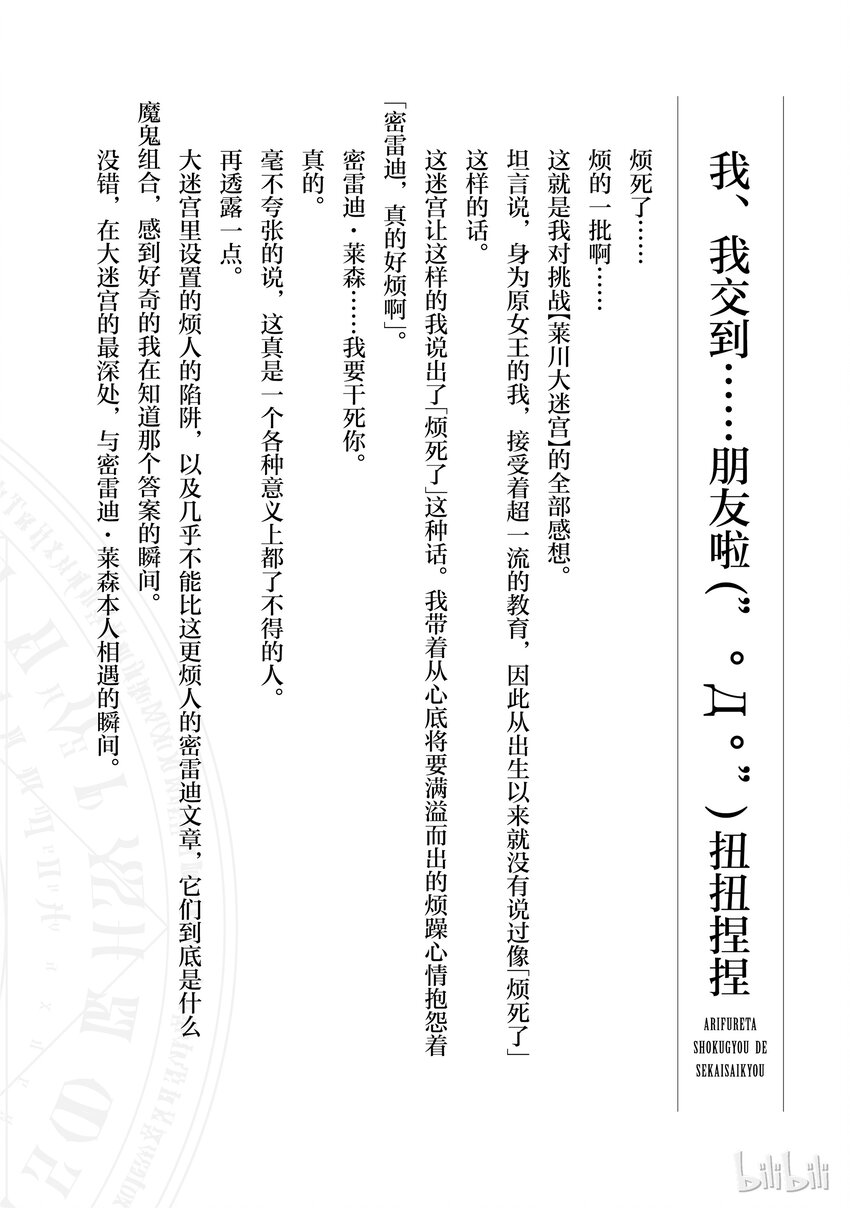 我、我交到……朋友啦(”。Д。”)扭扭捏捏
ARIFURETA
SHOKUGYOU DE
SEKAISAIKYOU
烦死了……
烦的一批啊……
这就是我对挑战【莱川大迷宫】的全部感想。
坦言说，身为原女王的我，接受着超一流的教育，因此从出生以来就没有说过像「烦死了」
这样的话。
这迷宫让这样的我说出了「烦死了」这种话。我带着从心底将要满溢而出的烦躁心情抱怨着
「密雷迪，真的好烦啊」。
密雷迪·莱森……我要干死你。
真的。
毫不夸张的说，这真是一个各种意义上都了不得的人。
再透露一点。
大迷宫里设置的烦人的陷阱，以及几乎不能比这更烦人的密雷迪文章，它们到底是什么
魔鬼组合，感到好奇的我在知道那个答案的瞬间。
没错，在大迷宫的最深处，与密雷迪·莱森本人相遇的瞬间。
bilibili